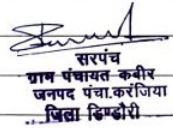 सरपंच
ग्राम पंचायत कबीर
जनपद पंचा.करंजिया
जिला डिण्डौरी